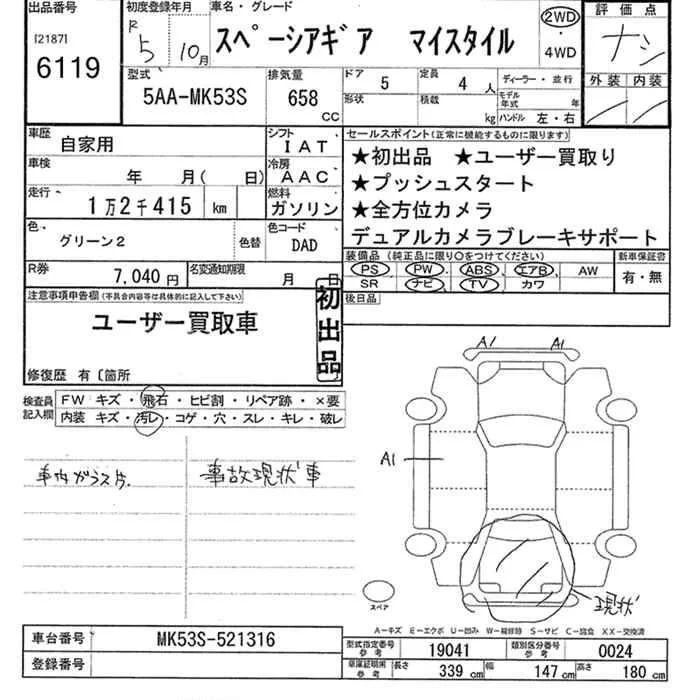 出品番号
[2187]
6119
初度登録年月
R 5 10月
車名・グレード
スペーシアギア マイスタイル
2WD
・
4WD
評価点
ナシ
外装 内装
型式
5AA-MK53S
排気量
658 CC
ドア 5
形状
定員 4 人
積載 kg
ディーラー・並行
モデル年式 年
ハンドル 左・右
車歴 自家用
シフト IAT
車検 年 月( 日)
冷房 AAC
走行 1万2千415 km
燃料 ガソリン
色 グリーン2 色替
色コード DAD
R券 7,040円
名変通知期限 月 日
セールスポイント(正常に機能するものに限ります)
★初出品 ★ユーザー買取り
★プッシュスタート
★全方位カメラ
デュアルカメラブレーキサポート
装備品(純正品に限り○をつけてください)
PS PW ABS エアB AW
SR ナビ TV カワ
新車保証書
有・無
後日品
注意事項申告欄(不具合内容等は具体的に記入して下さい)
ユーザー買取車
初出品
修復歴 有〔箇所
検査員記入欄
FW キズ・飛石・ヒビ割・リペア跡・×要
内装 キズ・汚レ・コゲ・穴・スレ・キレ・破レ
車内ガラス片.
事故現状車
A1 A1
A1
現状
スペア
A-キズ E-エクボ U-凹み W-補修跡 S-サビ C-腐食 XX-交換済
車台番号 MK53S-521316
登録番号
型式指定番号参考 19041
類別区分番号参考 0024
車庫証明用参考 長さ 339cm 幅 147cm 高さ 180cm